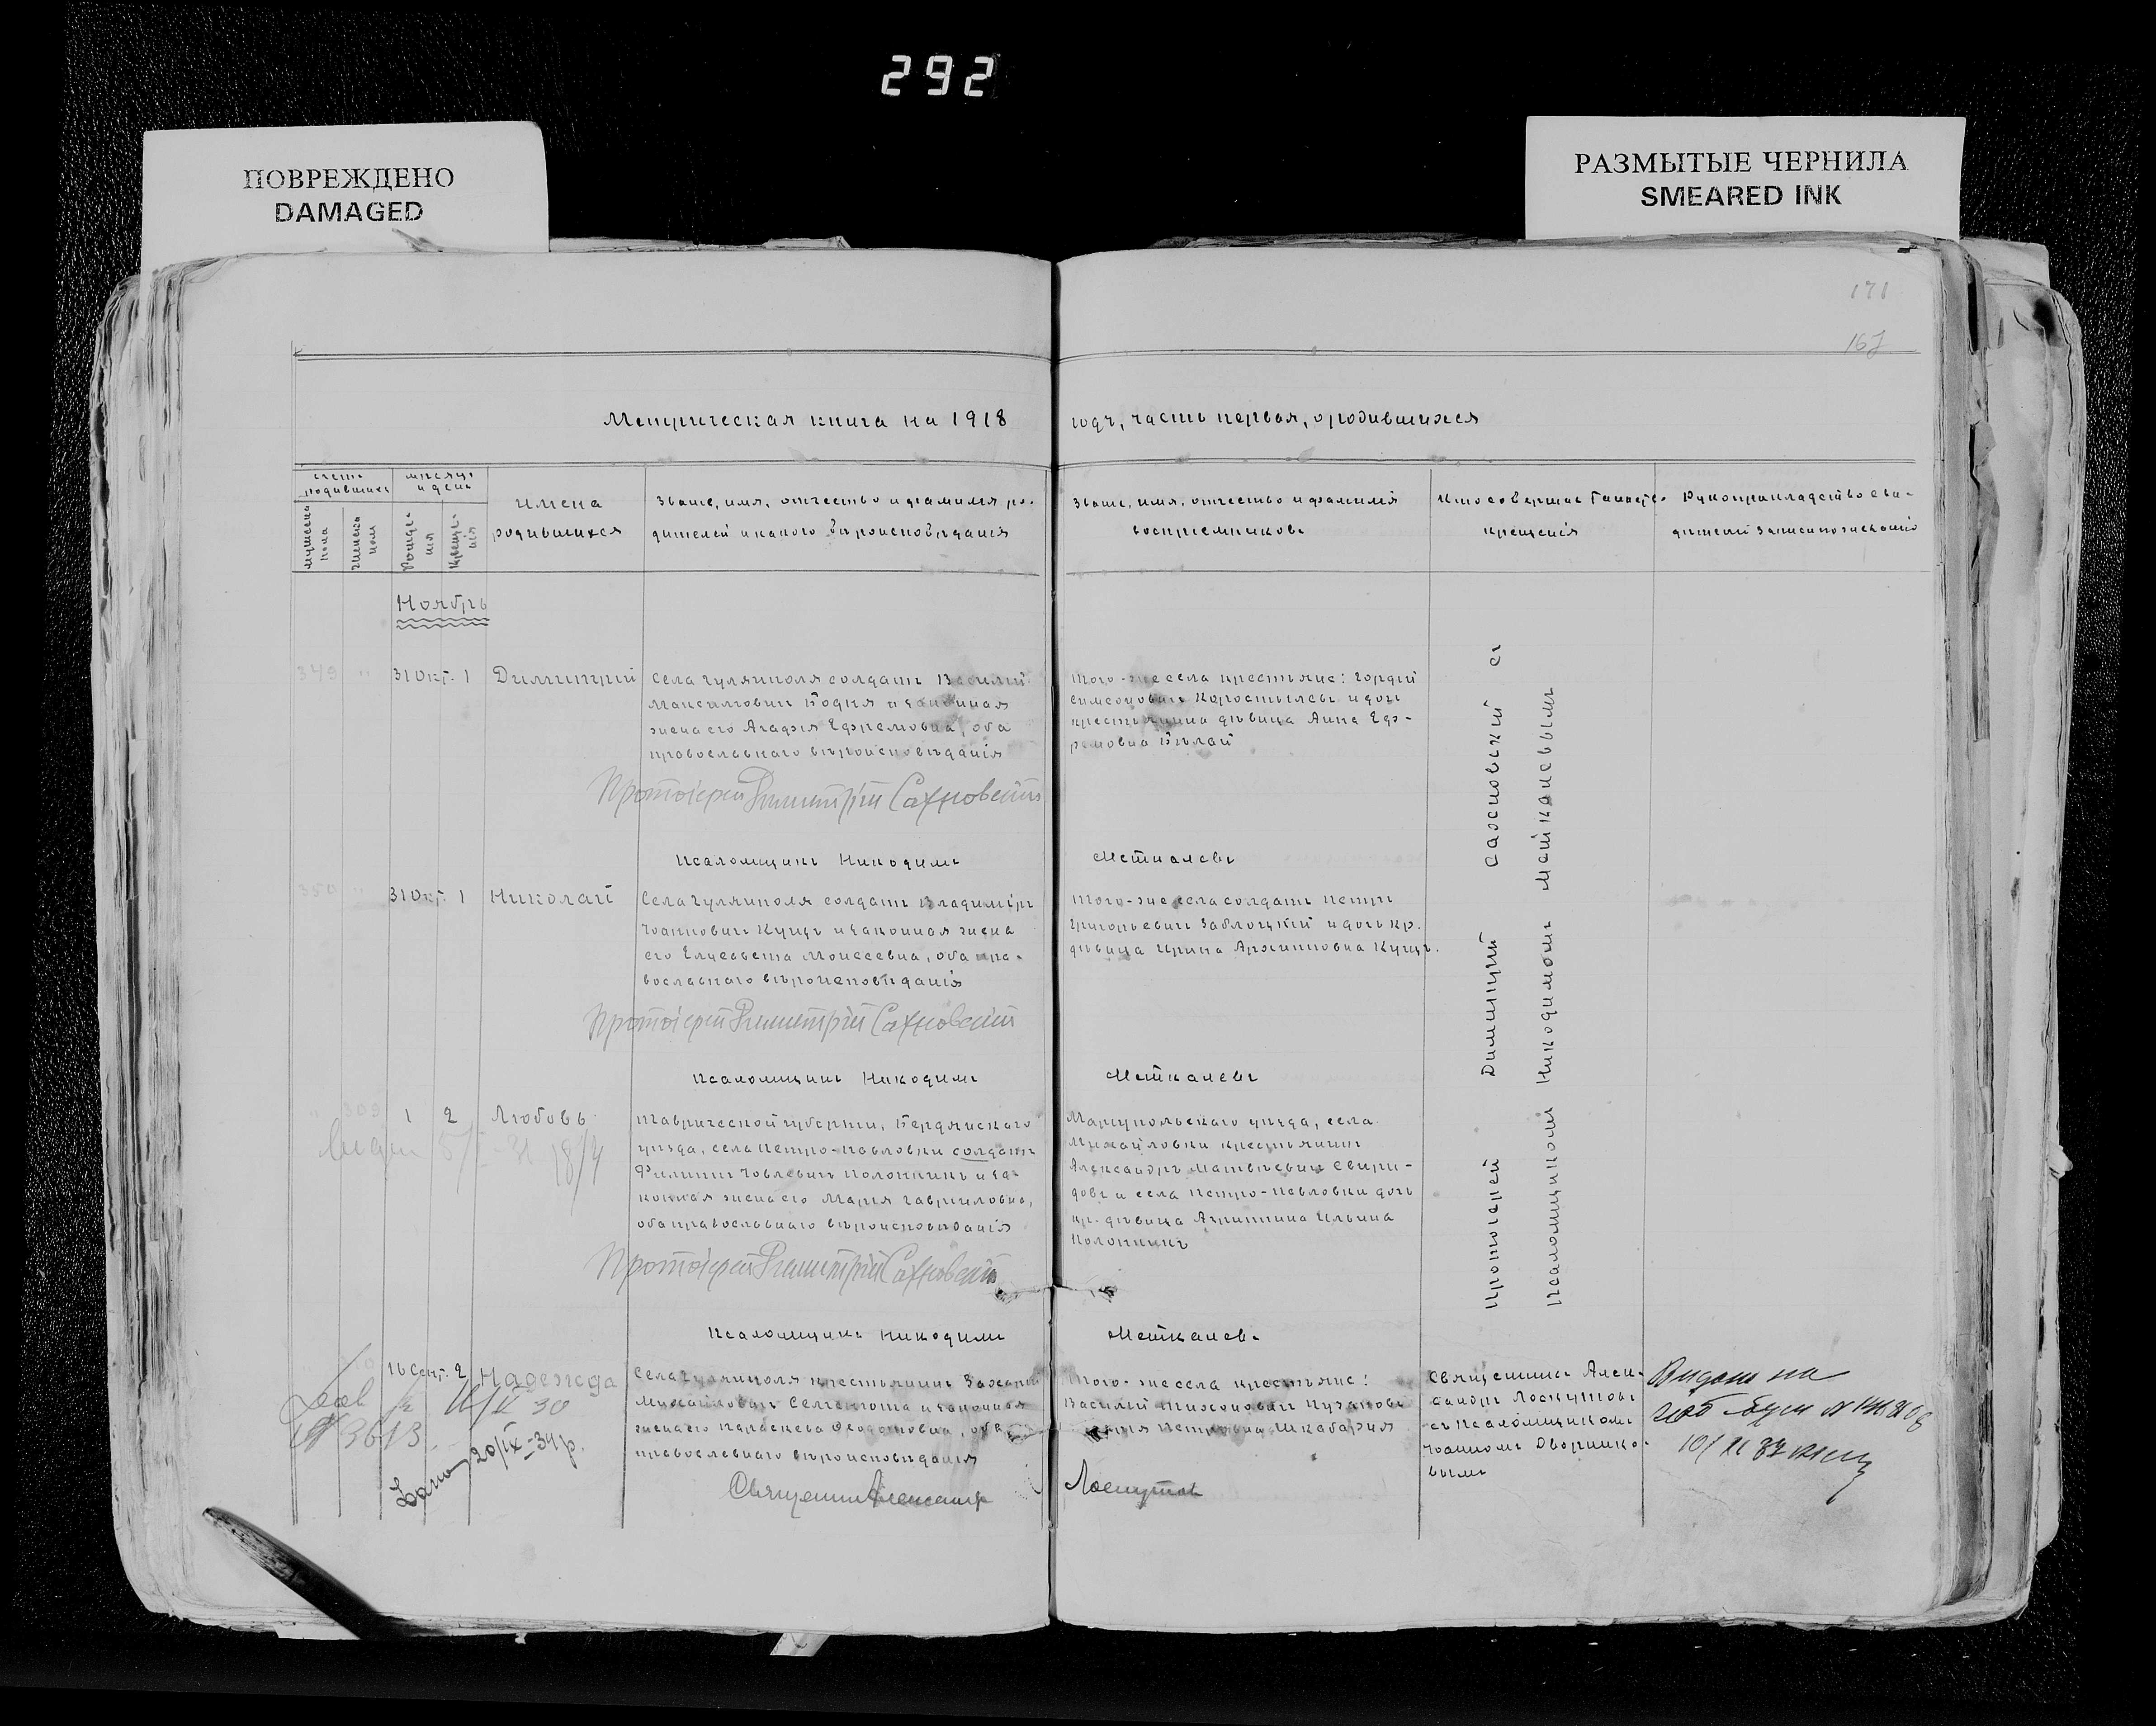 292
ПОВРЕЖДЕНО
DAMAGED
РАЗМЫТЫЕ ЧЕРНИЛА
SMEARED INK
171
167
Метрическая книга на 1918
годъ, часть первая, о родившихся
Счетъ родившихся
мужеска пола
женска пола
Мѣсяцъ и день
Рожденія
Крещенія
Имена
родившихся
Званіе, имя, отчество и фамилія ро-
дителей и какого вѣроисповѣданія
Званіе, имя, отчество и фамилія
воспріемниковъ
Кто совершалъ таинство
крещенія
Рукоприкладство сви-
дѣтелей записи по желанію
Ноябрь
349 " 31 Окт. 1 Димитрій
Села Гуляйполя солдатъ Василій
Максимовичъ Бодня и законная
жена его Агафія Ефремовна, оба
православнаго вѣроисповѣданія
Того-же села крестьяне: Гордій
Симеоновичъ Коростылевъ и дочь
крестьянина дѣвица Анна Еф-
ремовна Бѣлай
Протоіерей Димитрій Сахновскій
Псаломщикъ Никодимъ
Мейкалевъ
350 " 31 Окт. 1 Николай
Села Гуляйполя солдатъ Владиміръ
Іоанновичъ Куцъ и законная жена
его Елисавета Моисеевна, оба пра-
вославнаго вѣроисповѣданія
Того-же села солдатъ Петръ
Григорьевичъ Заблоцкій и дочь кр.
дѣвица Ирина Архиповна Куцъ.
Протоіерей Димитрій Сахновскій
Псаломщикъ Никодимъ
Мейкалевъ
" 309 1 2 Любовь
Таврической губерніи, Бердянскаго
уѣзда, села Петро-Павловки солдатъ
Филиппъ Іовлевичъ и за-
конная жена его Марія Гавриловна,
оба православнаго вѣроисповѣданія
Маріупольскаго уѣзда, села
Михайловки крестьянинъ
Александръ Матвѣевичъ Свири-
довъ и села Петро-Павловки дочь
кр. дѣвица Агриппина Ильина
Протоіерей Димитрій Сахновскій
Псаломщикъ Никодимъ
Мейкалевъ
Протоіерей Димитрій Сахновскій съ
псаломщикомъ Никодимомъ Мейкалевымъ
16 Сент. 2 Надежда
Села Гуляйполя крестьянинъ Захарій
Михайловичъ и законная
жена его Параскева Федотовна, оба
православнаго вѣроисповѣданія
Того-же села крестьяне:
Василій Тихоновичъ Пузановъ
Петровна Шкабарня
Священникъ Алек-
сандръ Лоскутовъ
съ псаломщикомъ
Іоанномъ Дворнико-
вымъ
Видано на
10/II 37
№ 3613
20/IX-34 р.
Священникъ Александръ
Лоскутовъ